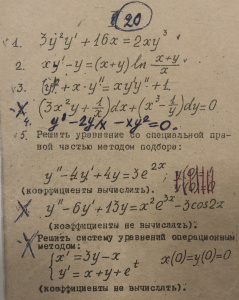 20
1. 3y²y' + 16x = 2xy³
2. xy' - y = (x+y) ln (x+y)/x
3. y' + x·y'' = xy'y'' + 1
(3x²y + 1/x)dx + (x³ - 1/y)dy = 0
4. y' - 2y/x - xy² = 0.
5. Решить уравнение со специальной пра-
вой частью методом подбора:
y'' - 4y' + 4y = 3e^{2x}
(коэффициенты вычислять).
y'' - 6y' + 13y = x²e^{3x} - 3cos2x
(коэффициенты не вычислять).
Решить систему уравнений операционным
методом:
{ x' = 3y - x
x(0) = y(0) = 0
{ y' = x + y + e^t
(коэффициенты не вычислять).